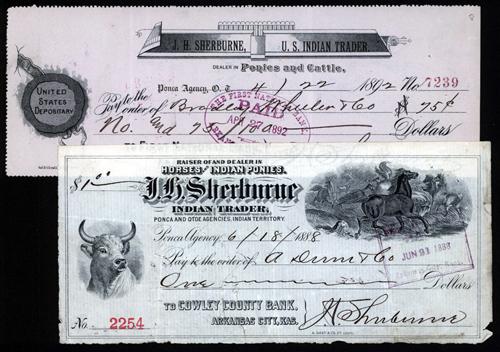 J. H. SHERBURNE, U. S. INDIAN TRADER.
DEALER IN Ponies and Cattle,
Ponca Agency, O. T. 4/22 1892 No. 7239
UNITED STATES DEPOSITARY
Pay to the order of & Co $ 75¢
THE FIRST NAT BANK
PAID
APR 27 1892
No. and 75/100 Dollars
RAISER OF AND DEALER IN
HORSES AND INDIAN PONIES.
$1.00
J H Sherburne
INDIAN TRADER,
PONCA AND OTOE AGENCIES, INDIAN TERRITORY.
Ponca Agency, 6/18/1888
JUN 21 1888
Pay to the order of A Dunn & Co
One Dollars
TO COWLEY COUNTY BANK,
ARKANSAS CITY, KAS.
J H Sherburne
No. 2254